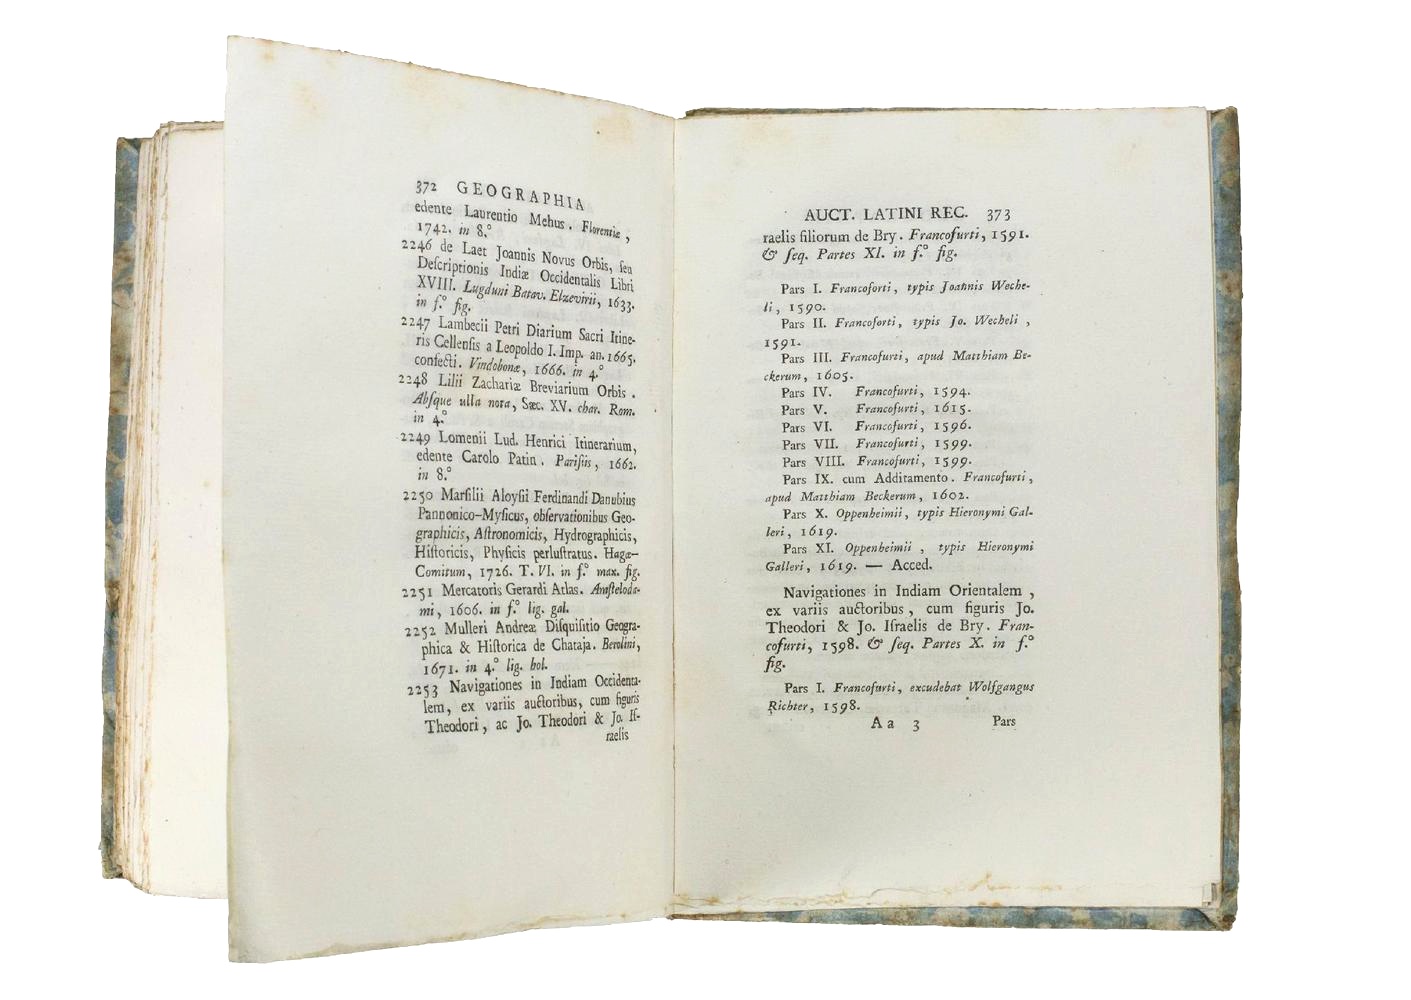 372 GEOGRAPHIA
edente Laurentio Mehus. Florentiæ,
1742. in 8.°
2246 de Laet Joannis Novus Orbis, ſeu
Deſcriptionis Indiæ Occidentalis Libri
XVIII. Lugduni Batav. Elzevirii, 1633.
in f.° fig.
2247 Lambecii Petri Diarium Sacri Itine-
ris Cellenſis a Leopoldo I. Imp. an. 1665.
confecti. Vindobonæ, 1666. in 4.°
2248 Lilii Zachariæ Breviarium Orbis.
Abſque ulla nota, Sæc. XV. char. Rom.
in 4.°
2249 Lomenii Lud. Henrici Itinerarium,
edente Carolo Patin. Pariſiis, 1662.
in 8.°
2250 Marſilii Aloyſii Ferdinandi Danubius
Pannonico-Myſicus, obſervationibus Geo-
graphicis, Aſtronomicis, Hydrographicis,
Hiſtoricis, Phyſicis perluſtratus. Hagæ-
Comitum, 1726. T. VI. in f.° max. fig.
2251 Mercatoris Gerardi Atlas. Amſteloda-
mi, 1606. in f.° lig. gal.
2252 Mulleri Andreæ Diſquiſitio Geogra-
phica & Hiſtorica de Chataja. Berolini,
1671. in 4.° lig. hol.
2253 Navigationes in Indiam Occidenta-
lem, ex variis auctoribus, cum figuris
Theodori, ac Jo. Theodori & Jo. Iſ-
raelis
AUCT. LATINI REC. 373
raelis filiorum de Bry. Francofurti, 1591.
& ſeq. Partes XI. in f.° fig.
Pars I. Francoforti, typis Joannis Weche-
li, 1590.
Pars II. Francoforti, typis Jo. Wecheli,
1591.
Pars III. Francofurti, apud Matthiam Be-
ckerum, 1605.
Pars IV. Francofurti, 1594.
Pars V. Francofurti, 1615.
Pars VI. Francofurti, 1596.
Pars VII. Francofurti, 1599.
Pars VIII. Francofurti, 1599.
Pars IX. cum Additamento. Francofurti,
apud Matthiam Beckerum, 1602.
Pars X. Oppenheimii, typis Hieronymi Gal-
leri, 1619.
Pars XI. Oppenheimii, typis Hieronymi
Galleri, 1619. — Acced.
Navigationes in Indiam Orientalem,
ex variis auctoribus, cum figuris Jo.
Theodori & Jo. Iſraelis de Bry. Fran-
cofurti, 1598. & ſeq. Partes X. in f.°
fig.
Pars I. Francofurti, excudebat Wolfgangus
Richter, 1598.
Aa 3 Pars